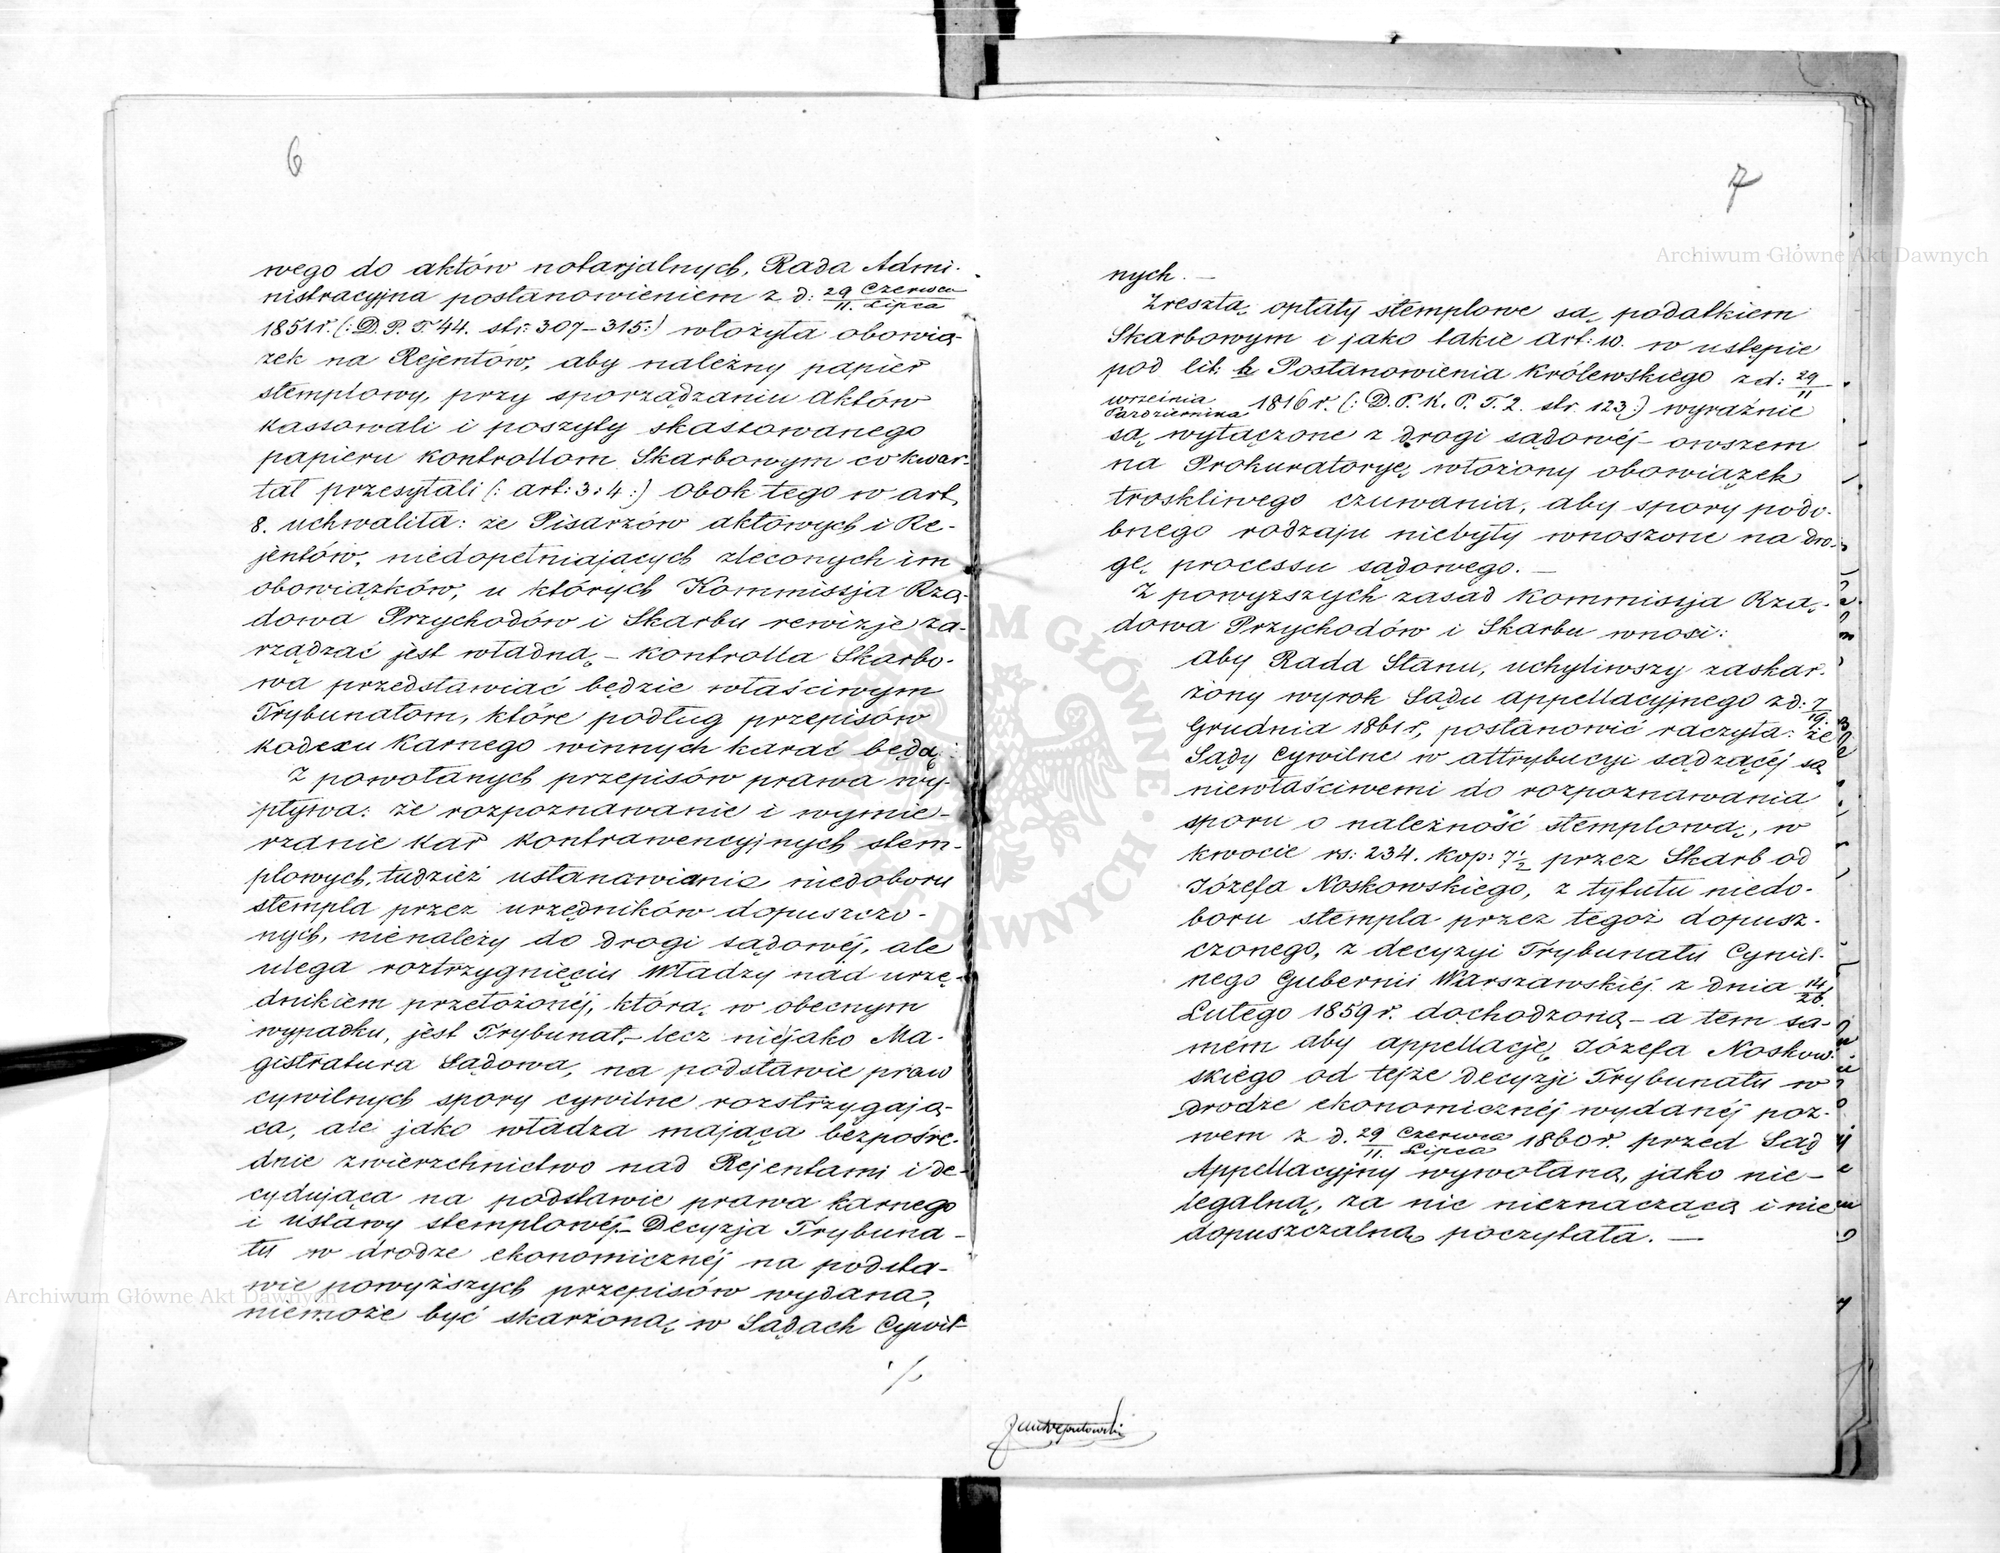 6
wego do aktów notarjalnych, Rada Admi-
nistracyjna postanowieniem z d: 29 Czerwca / 11. Lipca
1851 r. (: D. P. T 44. str: 307–315:) włożyła obowią-
zek na Rejentów, aby należny papier
stemplowy, przy sporządzaniu aktów
kassowali i poszyty skassowanego
papieru kontrollom Skarbowym co kwar-
tał przesyłali (: art: 3 i 4:) obok tego w art.
8. uchwaliła: że Pisarzów aktowych i Re-
jentów, niedopełniających zleconych im
obowiązków, u których Kommissja Rzą-
dowa Przychodów i Skarbu rewizje za-
rządzać jest władną, – kontrolla Skarbo-
wa przedstawiać będzie właściwym
Trybunałom, które podług przepisów
kodexu karnego winnych karać będą:
Z powołanych przepisów prawa wy-
pływa: że rozpoznawanie i wymie-
rzanie kar kontrawencyjnych stem-
plowych, tudzież ustanawianie niedoboru
stempla przez urzędników dopuszczo-
nych, nienależy do drogi sądowéj, ale
ulega roztrzygnięciu Władzy nad urzę-
dnikiem przełożonéj, którą, w obecnym
wypadku, jest Trybunał, – lecz niejako Ma-
gistratura Sądowa, na podstawie praw
cywilnych spory cywilne rozstrzygają-
ca, ale jako władza mająca bezpośre-
dnie zwierzchnictwo nad Rejentami i de-
cydująca na podstawie prawa karnego
i ustawy stemplowéj. – Decyzja Trybuna-
łu w drodze ekonomicznéj na podsta-
wie powyższych przepisów wydana,
niemoże być skarżoną w Sądach Cywil-
7
nych. –
Zresztą, opłaty stemplowe są podatkiem
Skarbowym i jako takie art: 10. w ustępie
pod lit: b Postanowienia Królewskiego z d: 29 / 11
września / Października 1816 r. (: D. P. K. P. T. 2. str. 123:) wyraźnie
są wyłączone z drogi sądowéj – owszem
na Prokuratoryę włożony obowiązek
troskliwego czuwania, aby spory podo-
bnego rodzaju niebyły wnoszone na dro-
gę processu sądowego. –
Z powyższych zasad Kommissja Rzą-
dowa Przychodów i Skarbu wnosi:
aby Rada Stanu, uchyliwszy zaskar-
żony wyrok Sądu appellacyjnego z d: 7/19.
Grudnia 1861 r, postanowić raczyła: że
Sądy Cywilne w attrybucyi sądzącéj są
niewłaściwemi do rozpoznawania
sporu o należność stemplową, w
kwocie rs: 234. kop: 7½ przez Skarb od
Józefa Noskowskiego, z tytułu niedo-
boru stempla przez tegoż dopusz-
czonego, z decyzyi Trybunału Cywil-
nego Gubernii Warszawskiéj z dnia 14/26.
Lutego 1859 r. dochodzoną – a tem sa-
mém aby appellację, Józefa Noskow-
skiego od tejże decyzji Trybunału w
drodze ekonomicznéj wydanéj poz-
wem z d. 29 Czerwca / 11. Lipca 1860 r. przed Sąd
Appellacyjny wywołaną, jako nie-
legalną, za nic nieznaczącą i nie
dopuszczalną poczytała. –
Archiwum Główne Akt Dawnych
Archiwum Główne Akt Dawnych